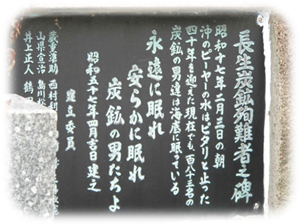 長生炭鉱殉難者之碑
昭和十七年二月三日の朝
沖のピーヤの水はピタリと止った
四十年を迎えた現在でも、百八十三名の
炭鉱の男達は海底に眠っている
永遠に眠れ
安らかに眠れ
炭鉱の男たちよ
昭和五十七年四月吉日建之
建立委員
山県宣治
井上正人